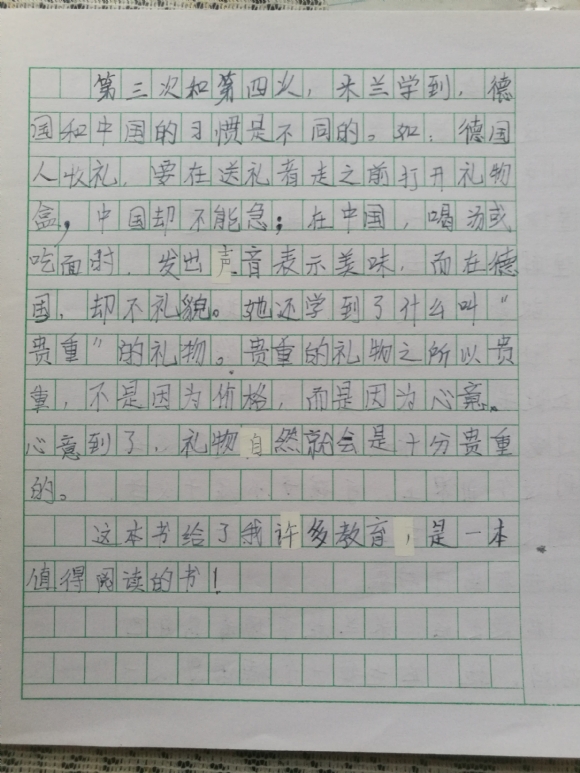 第三次和第四次，米兰学到，德
国和中国的习惯是不同的。如：德国
人收礼，要在送礼者走之前打开礼物
盒，中国却不能急；在中国，喝汤或
吃面时，发出声音表示美味，而在德
国，却不礼貌。她还学到了什么叫“
贵重”的礼物。贵重的礼物之所以贵
重，不是因为价格，而是因为心意。
心意到了，礼物自然就会是十分贵重
的。
这本书给了我许多教育，是一本
值得阅读的书！